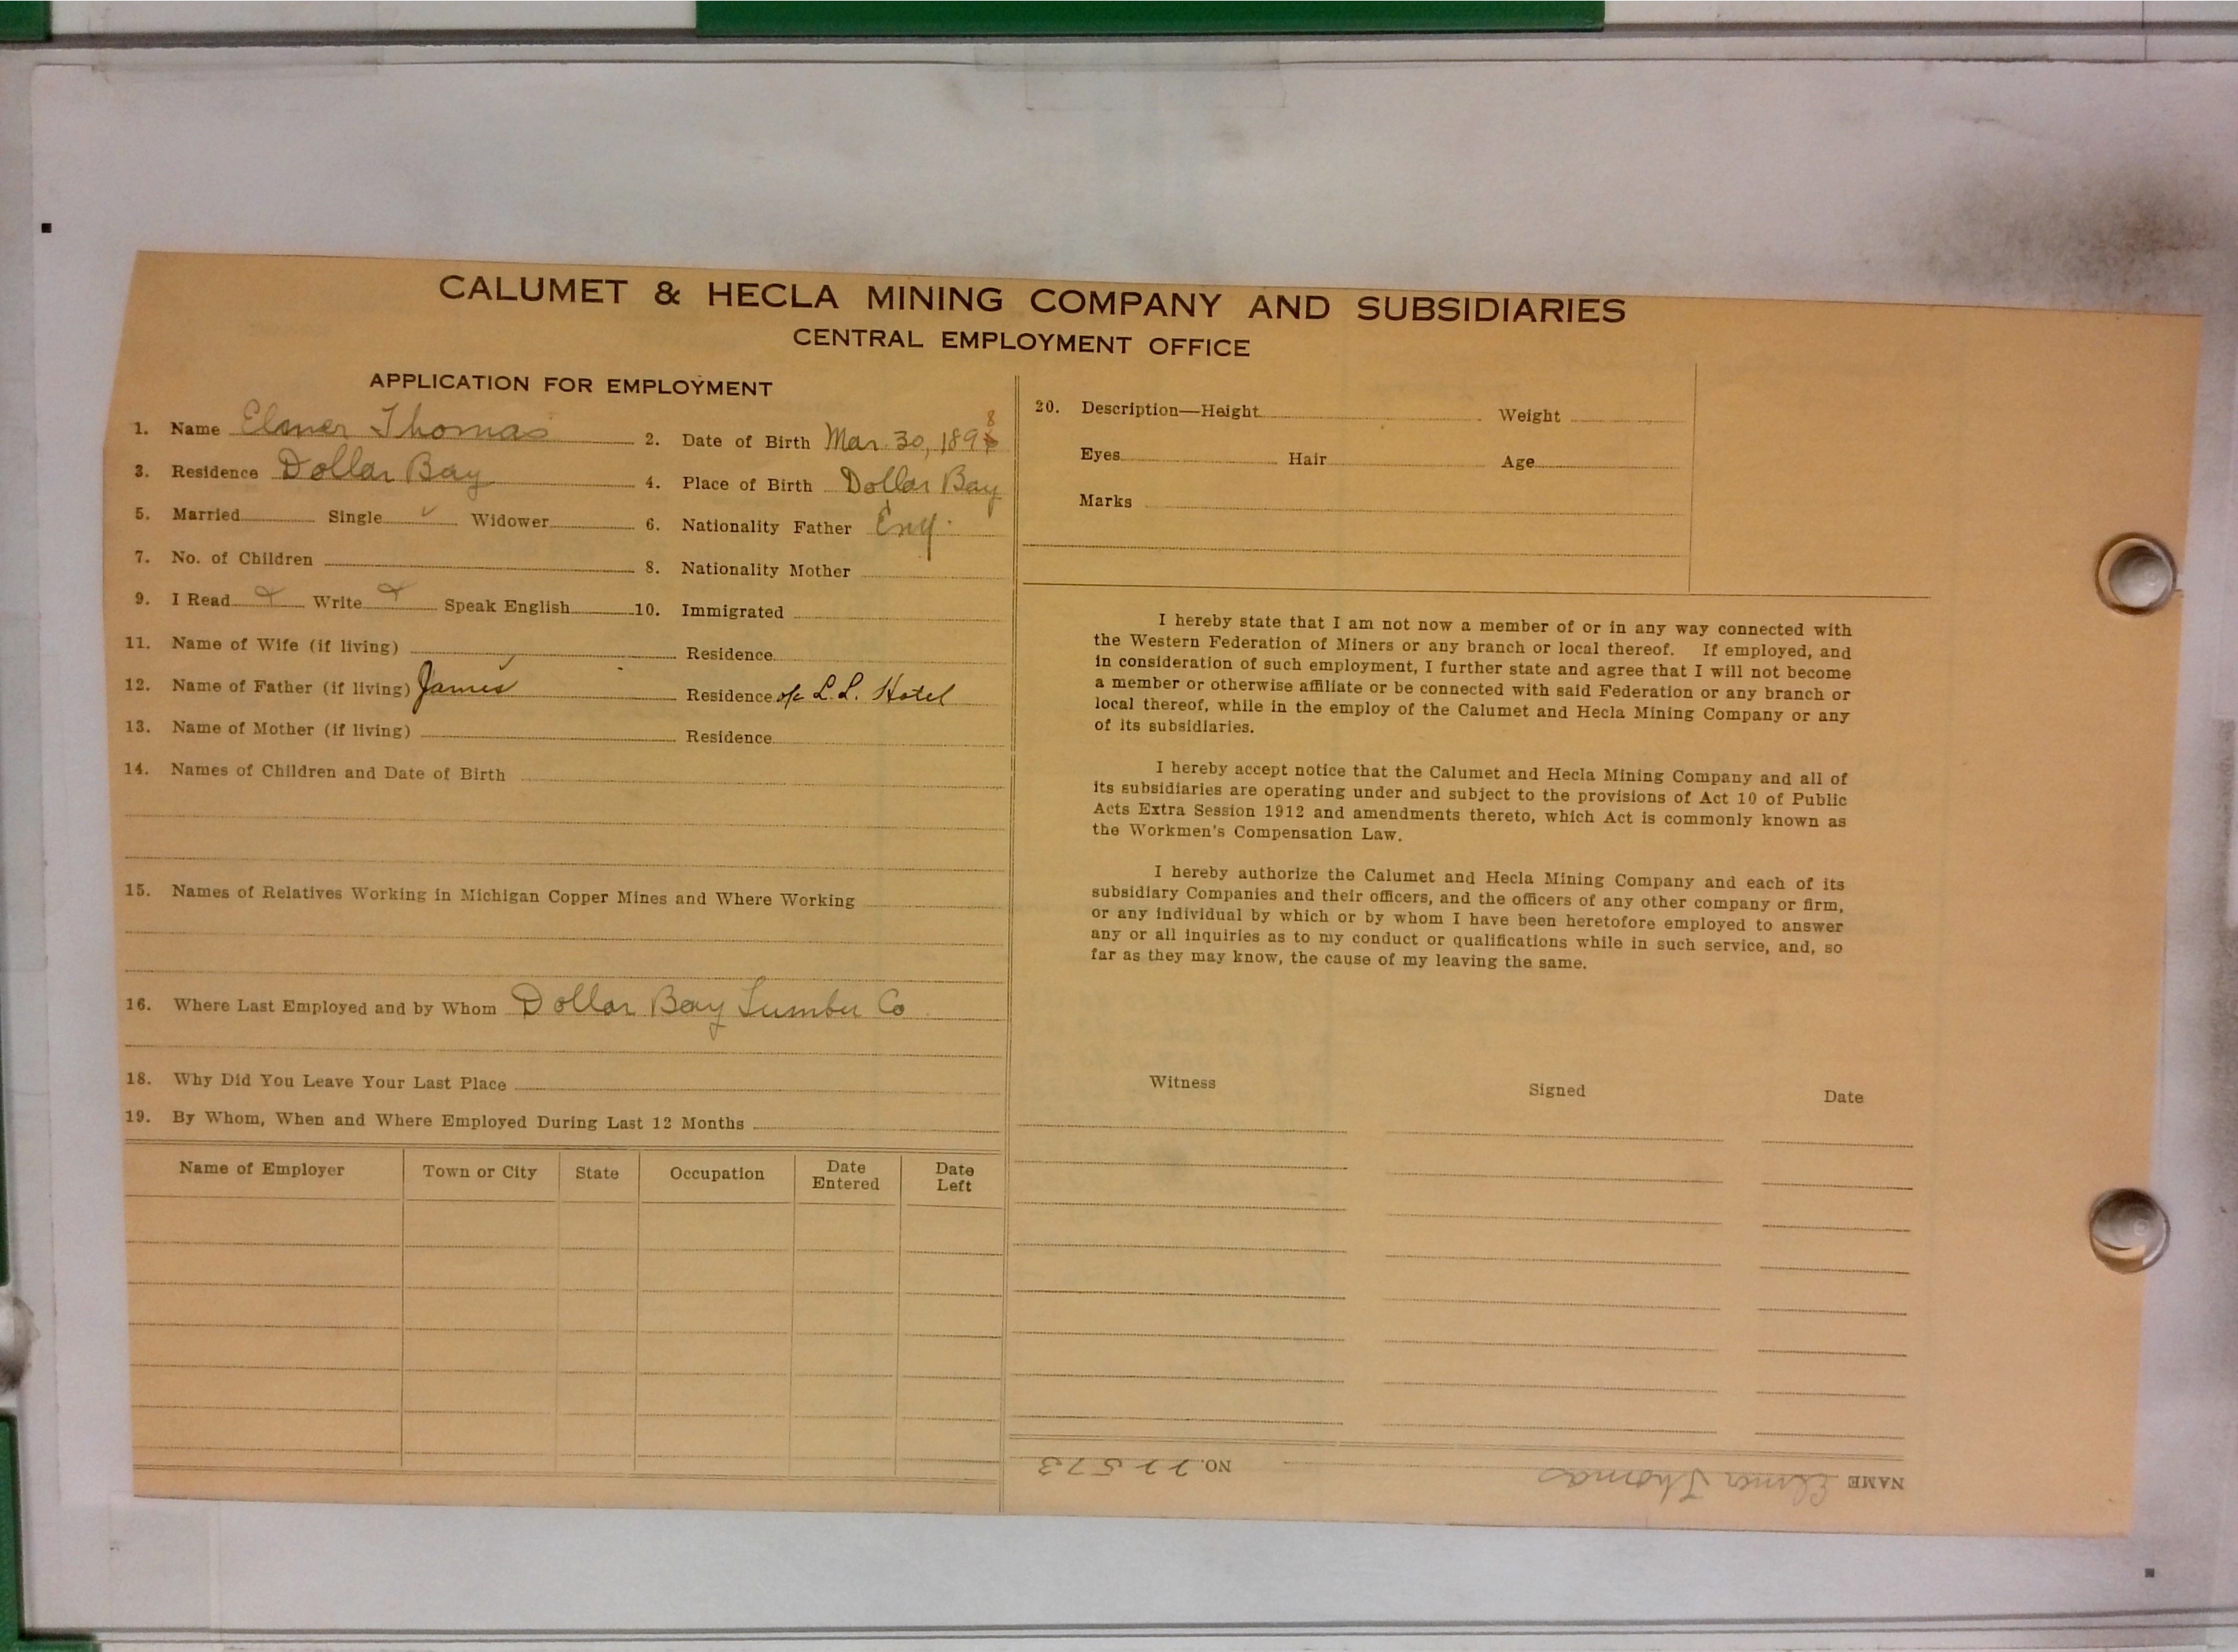 CALUMET & HECLA MINING COMPANY AND SUBSIDIARIES
CENTRAL EMPLOYMENT OFFICE
APPLICATION FOR EMPLOYMENT
1. Name Elmer Thomas 2. Date of Birth Mar. 30, 189 8
3. Residence Dollar Bay 4. Place of Birth Dollar Bay
5. Married Single ✓ Widower 6. Nationality Father Eng.
7. No. of Children 8. Nationality Mother
9. I Read Write Speak English 10. Immigrated
11. Name of Wife (if living) Residence
12. Name of Father (if living) James Residence o/c L.L. Hotel
13. Name of Mother (if living) Residence
14. Names of Children and Date of Birth
15. Names of Relatives Working in Michigan Copper Mines and Where Working
16. Where Last Employed and by Whom Dollar Bay Lumber Co
18. Why Did You Leave Your Last Place
19. By Whom, When and Where Employed During Last 12 Months
Name of Employer Town or City State Occupation Date Entered Date Left
20. Description—Height Weight
Eyes Hair Age
Marks
I hereby state that I am not now a member of or in any way connected with
the Western Federation of Miners or any branch or local thereof. If employed, and
in consideration of such employment, I further state and agree that I will not become
a member or otherwise affiliate or be connected with said Federation or any branch or
local thereof, while in the employ of the Calumet and Hecla Mining Company or any
of its subsidiaries.
I hereby accept notice that the Calumet and Hecla Mining Company and all of
its subsidiaries are operating under and subject to the provisions of Act 10 of Public
Acts Extra Session 1912 and amendments thereto, which Act is commonly known as
the Workmen's Compensation Law.
I hereby authorize the Calumet and Hecla Mining Company and each of its
subsidiary Companies and their officers, and the officers of any other company or firm,
or any individual by which or by whom I have been heretofore employed to answer
any or all inquiries as to my conduct or qualifications while in such service, and, so
far as they may know, the cause of my leaving the same.
Witness Signed Date
NAME Elmer Thomas NO. 22573